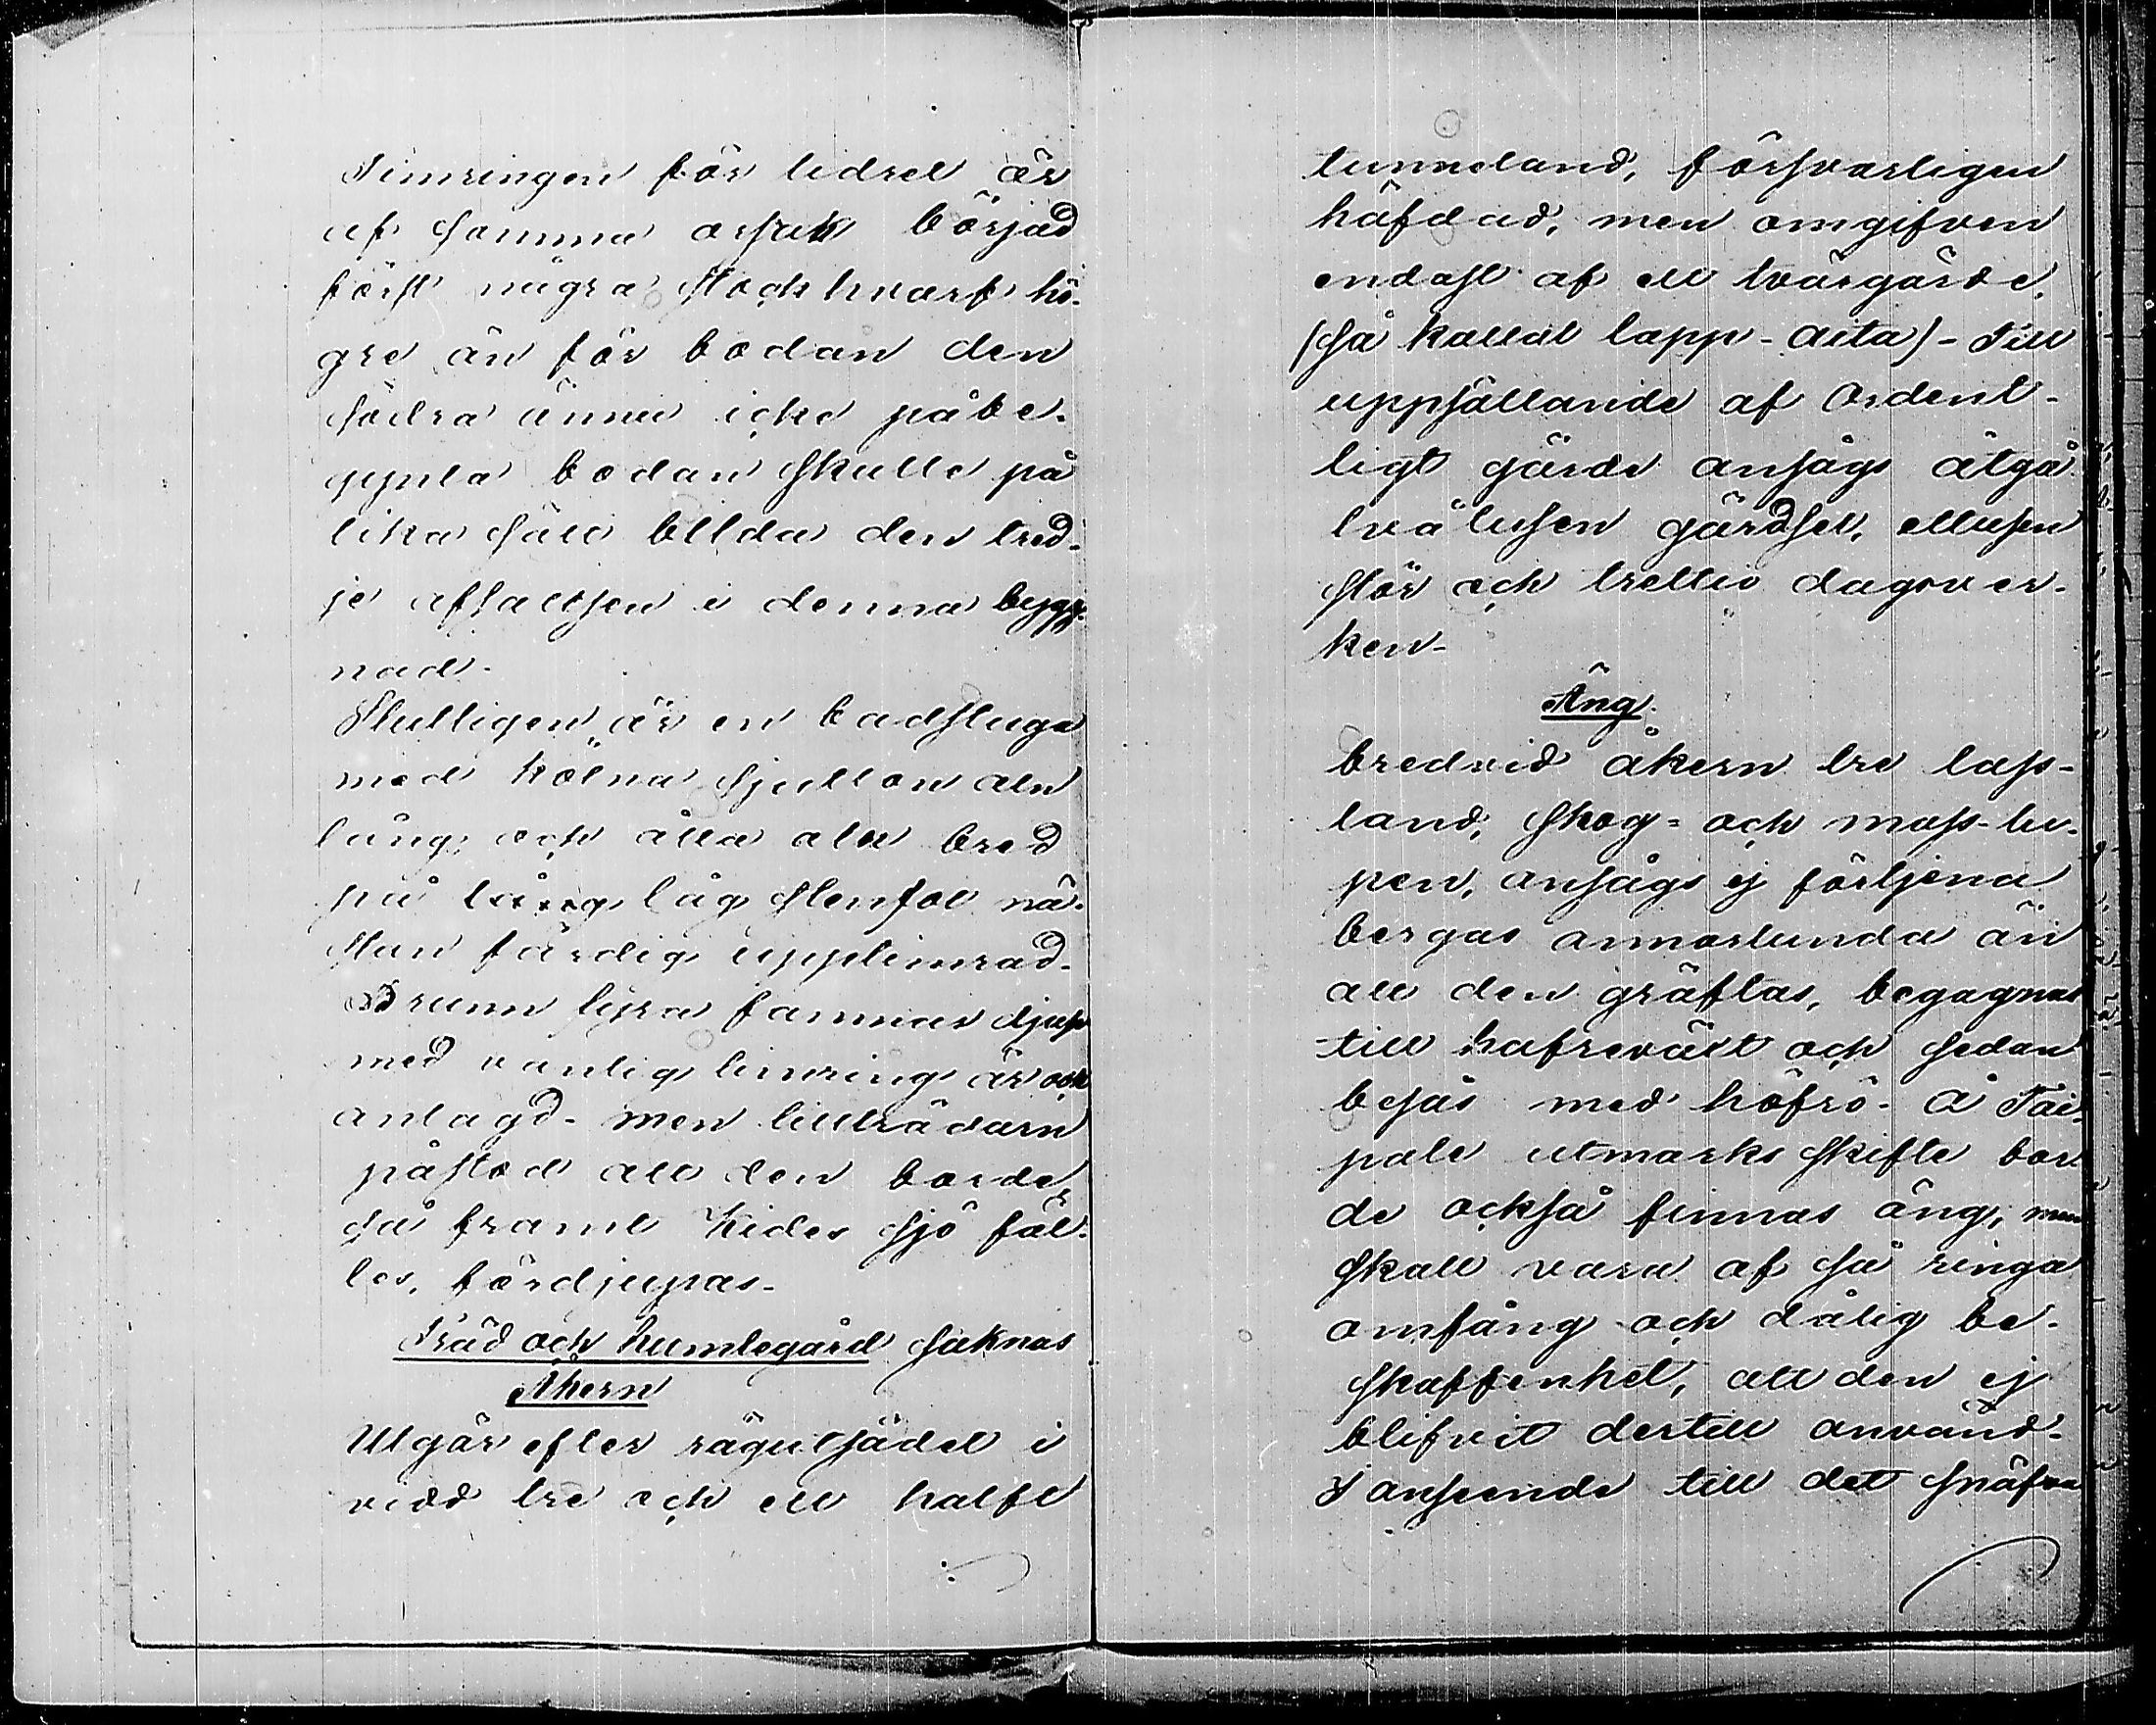 Timringen för lidret är
af samma orsak börjad
först några stockhvarf hö-
gre än för bodan den
södra ännu icke påbe-
gynta bodan skulle på
lika sätt bilda den tred-
je afsatsen i denna bygg-
nad.
Slutligen är en badstuga
med kölna sjutton aln
lång och åtta aln bred
på låg stenfot nä-
stan färdig upptimrad.
Brunn fyra famnar djup
med vanlig timring är ock
anlagd. men tillträdarn
påstod att den borde,
så framt Kides sjö fäl-
les, fördjupas.
Träd och humlegård saknas
Åkern
Utgör efter rågutsädet i
vidd tre och ett halft
tunneland, försvarligen
häfdad, men omgifven
endast af ett tvärgärde,
(så kallat lapp-aita) - Till
uppställande af ordent-
ligt gärde ansågs åtgå
tvåtusen gärdsel, ettusen
stör och trettio dagsver-
ken-
Äng.
bredvid åkern tre lass-
land, skog- och moss-lu-
pen, ansågs ej förtjena
bergas annorlunda än
att den gräftas, begagnas
till hafreväxt och sedan
besås med höfrö. Å Tai-
pale utmarks skifte bor-
de också finnas äng, men
skall vara af så ringa
omfång och dålig be-
skaffenhet, att den ej
blifvit dertill använd.
I anseende till det snäfva